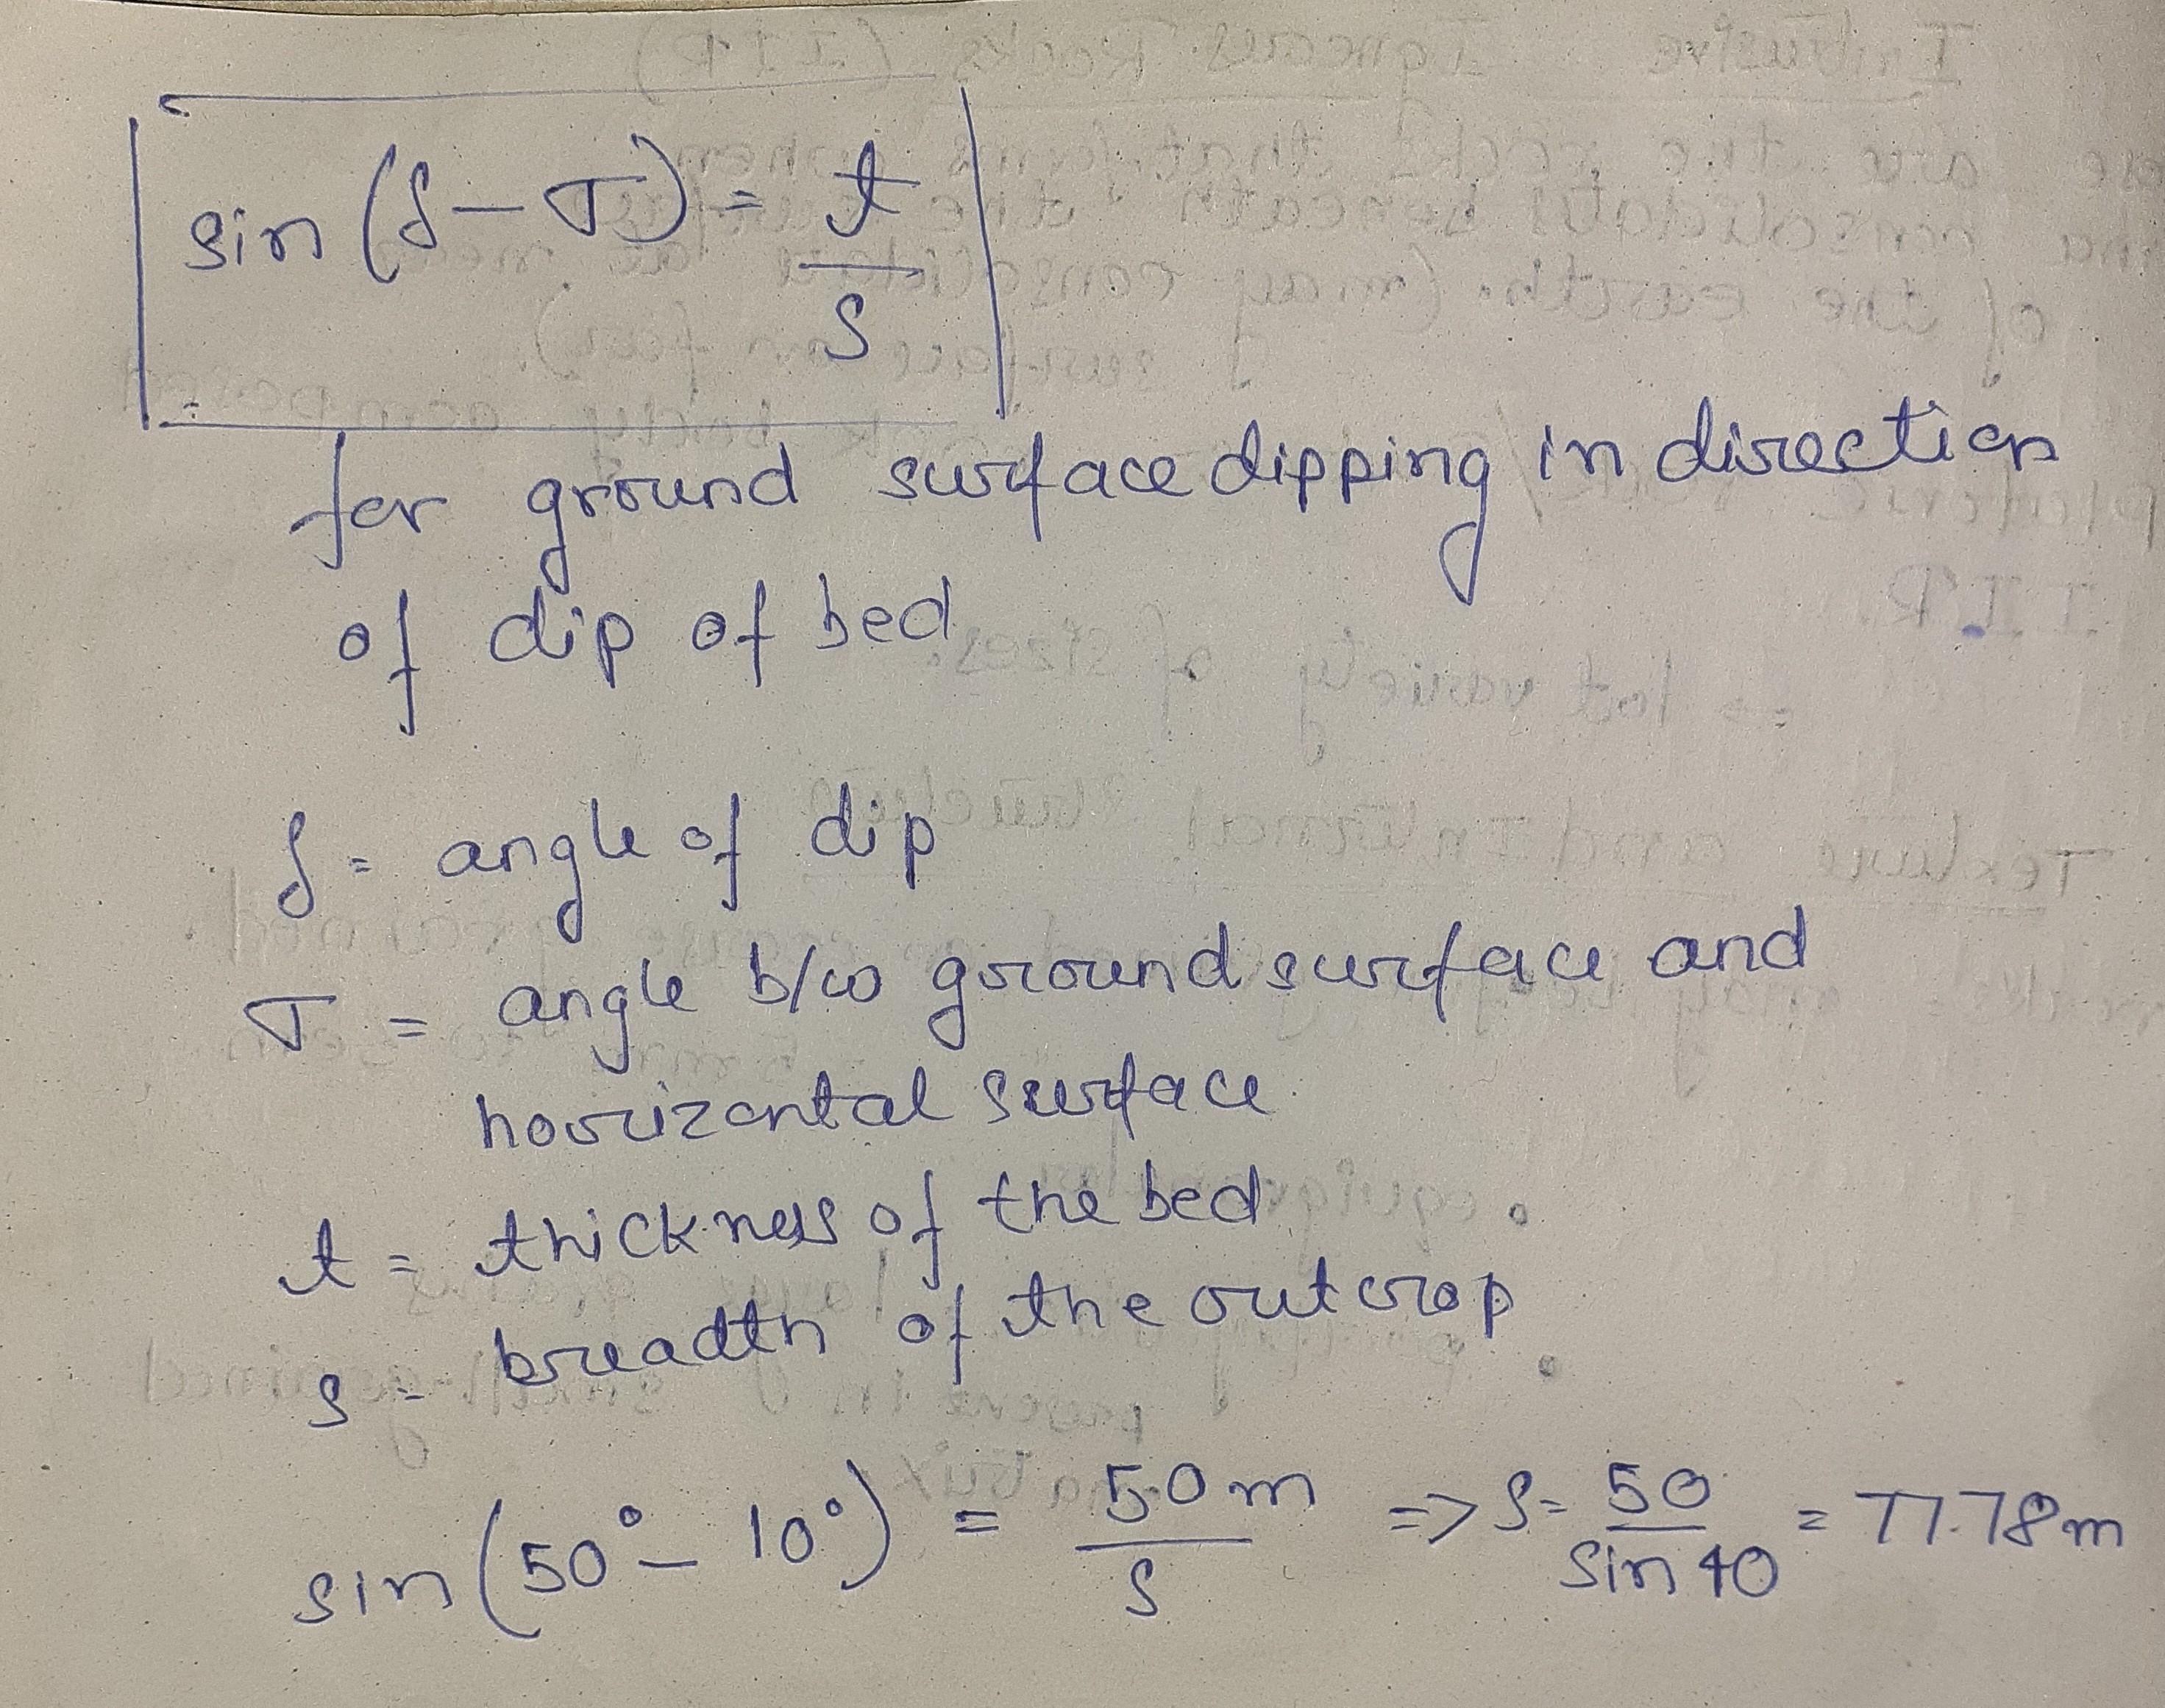 sin (δ - σ) = t/s
for ground surface dipping in direction
of dip of bed
δ = angle of dip
σ = angle b/w ground surface and
horizontal surface
t = thickness of the bed
s = breadth of the outcrop.
sin (50° - 10°) = 50m/s => s = 50/sin 40 = 77.78m